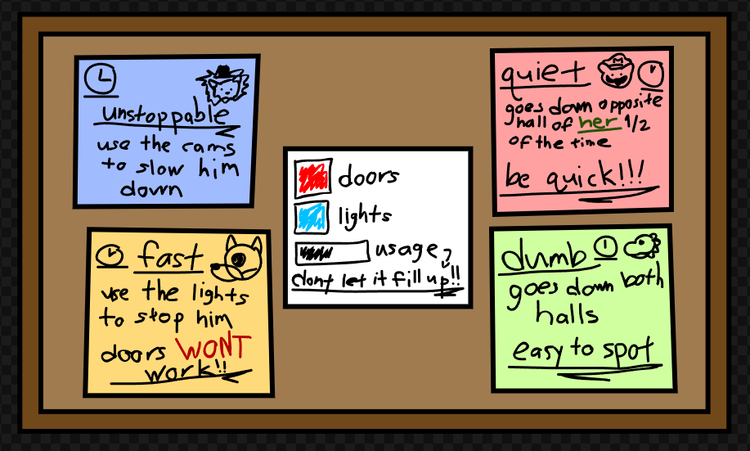 unstoppable
use the cams
to slow him
down
fast
use the lights
to stop him
doors WONT
work!!
doors
lights
usage?
dont let it fill up!!
quiet
goes down opposite
hall of her 1/2
of the time
be quick!!!
dumb
goes down both
halls
easy to spot